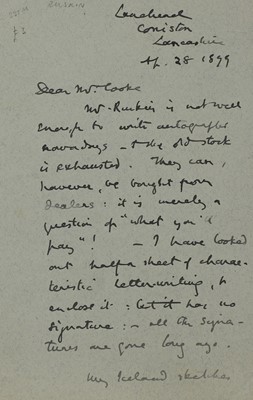 RUSKIN
£3
Lanehead
Coniston
Lancashire
Ap. 28 1899
Dear Mr. Cooke
Mr. Ruskin is not well
enough to write autographs
nowadays - & the old stock
is exhausted. They can,
however, be bought from
dealers: it is merely a
question of "what you'll
pay"! - I have looked
out half a sheet of charac-
teristic letterwriting, to
enclose it: but it has no
signature: - all the signa-
tures are gone long ago.
My Iceland sketches